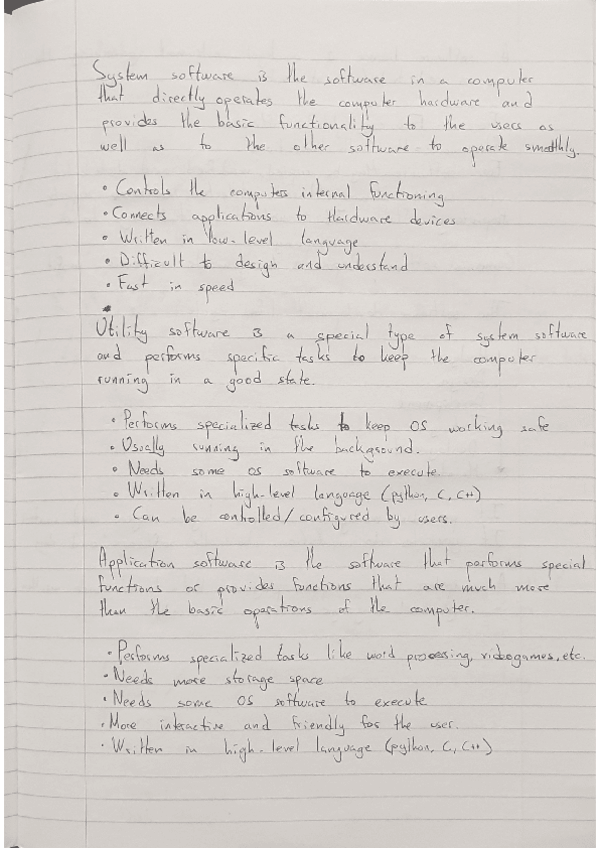 System software is the software in a computer
that directly operates the computer hardware and
provides the basic functionality to the users as
well as to the other software to operate smoothly.
• Controls the computers internal functioning
• Connects applications to Hardware devices
• Written in low-level language
• Difficult to design and understand
• Fast in speed
Utility software is a special type of system software
and performs specific tasks to keep the computer
running in a good state.
• Performs specialized tasks to keep OS working safe
• Usually running in the background.
• Needs some OS software to execute.
• Written in high-level language (python, C, C++)
• Can be controlled/configured by users.
Application software is the software that performs special
functions or provides functions that are much more
than the basic operations of the computer.
• Performs specialized tasks like word processing, videogames, etc.
• Needs more storage space
• Needs some OS software to execute
• More interactive and friendly for the user.
• Written in high-level language (python, C, C++)